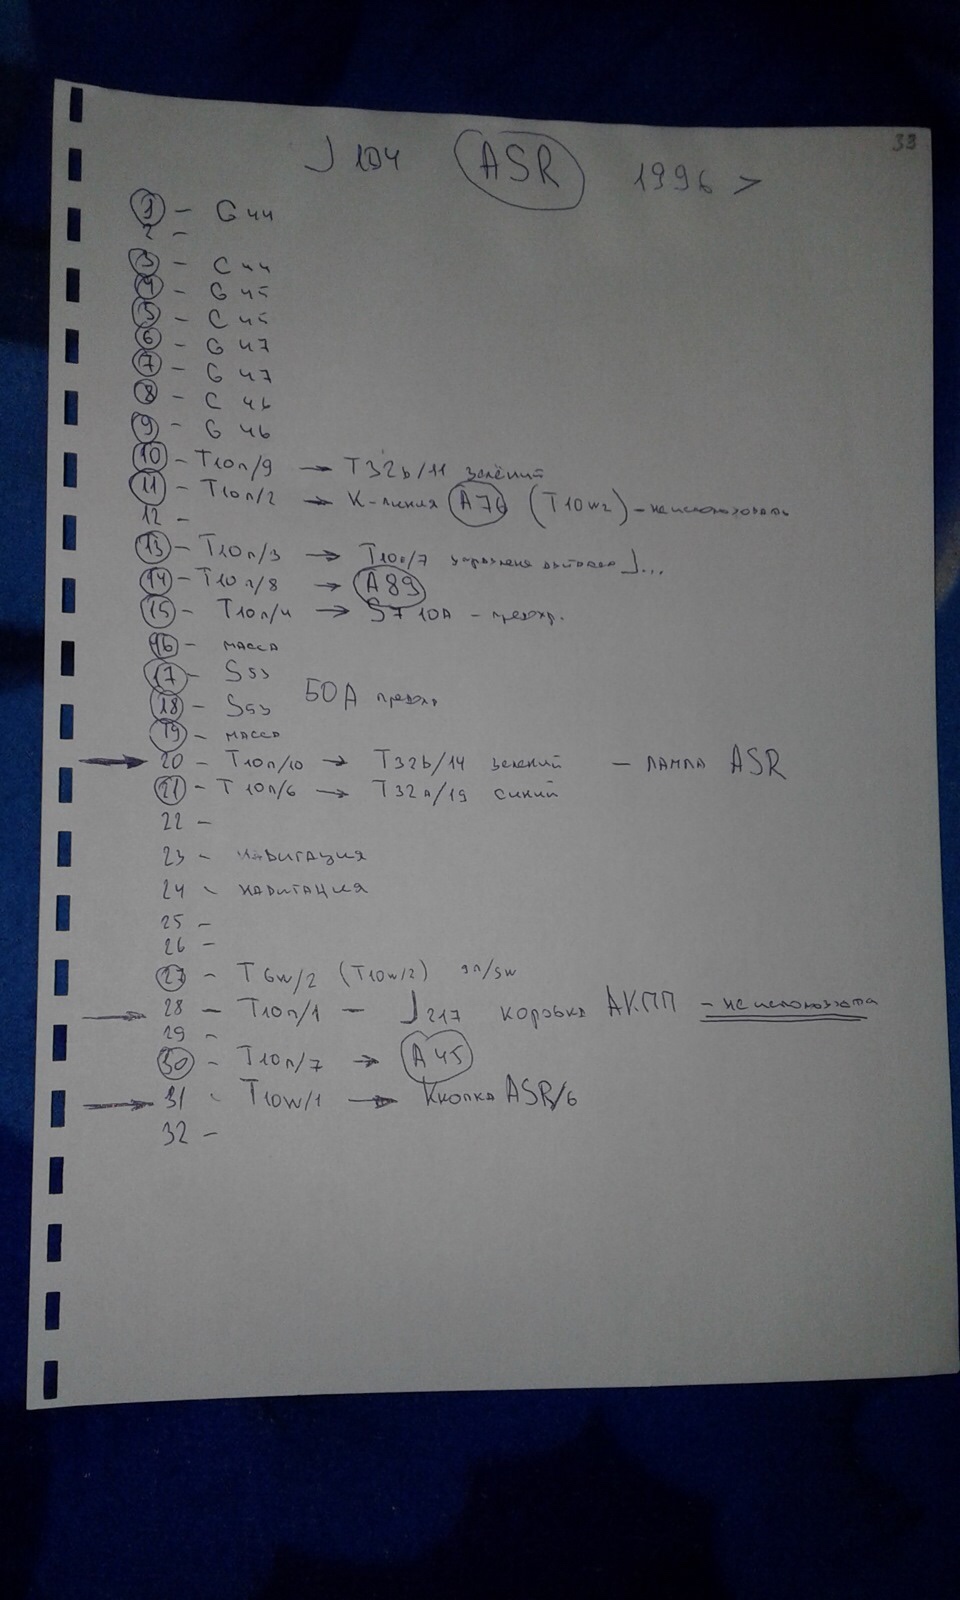 33
J 104 ASR 1996 >
1 - G 44
2 -
3 - G 44
4 - G 45
5 - G 45
6 - G 47
7 - G 47
8 - G 46
9 - G 46
10 - T10п/9 → T32b/11 зелёний
11 - T10п/2 → К-линия A76 (T10w2) - не использовать
12 -
13 - T10п/3 → T10п/7 J...
14 - T10п/8 → A89
15 - T10п/4 → S7 10A - предохр.
16 - масса
17 - S53
50A предохр
18 - S53
19 - масса
→ 20 - T10п/10 → T32b/14 зелений - лампа ASR
21 - T10п/6 → T32п/19 синий
22 -
23 - навигация
24 - навигация
25 -
26 -
27 - T6w/2 (T10w/2) эл/sw
→ 28 - T10п/1 - J217 коробка АКПП - не использовать
29 -
30 - T10п/7 → A45
→ 31 - T10w/1 → Кнопка ASR/6
32 -